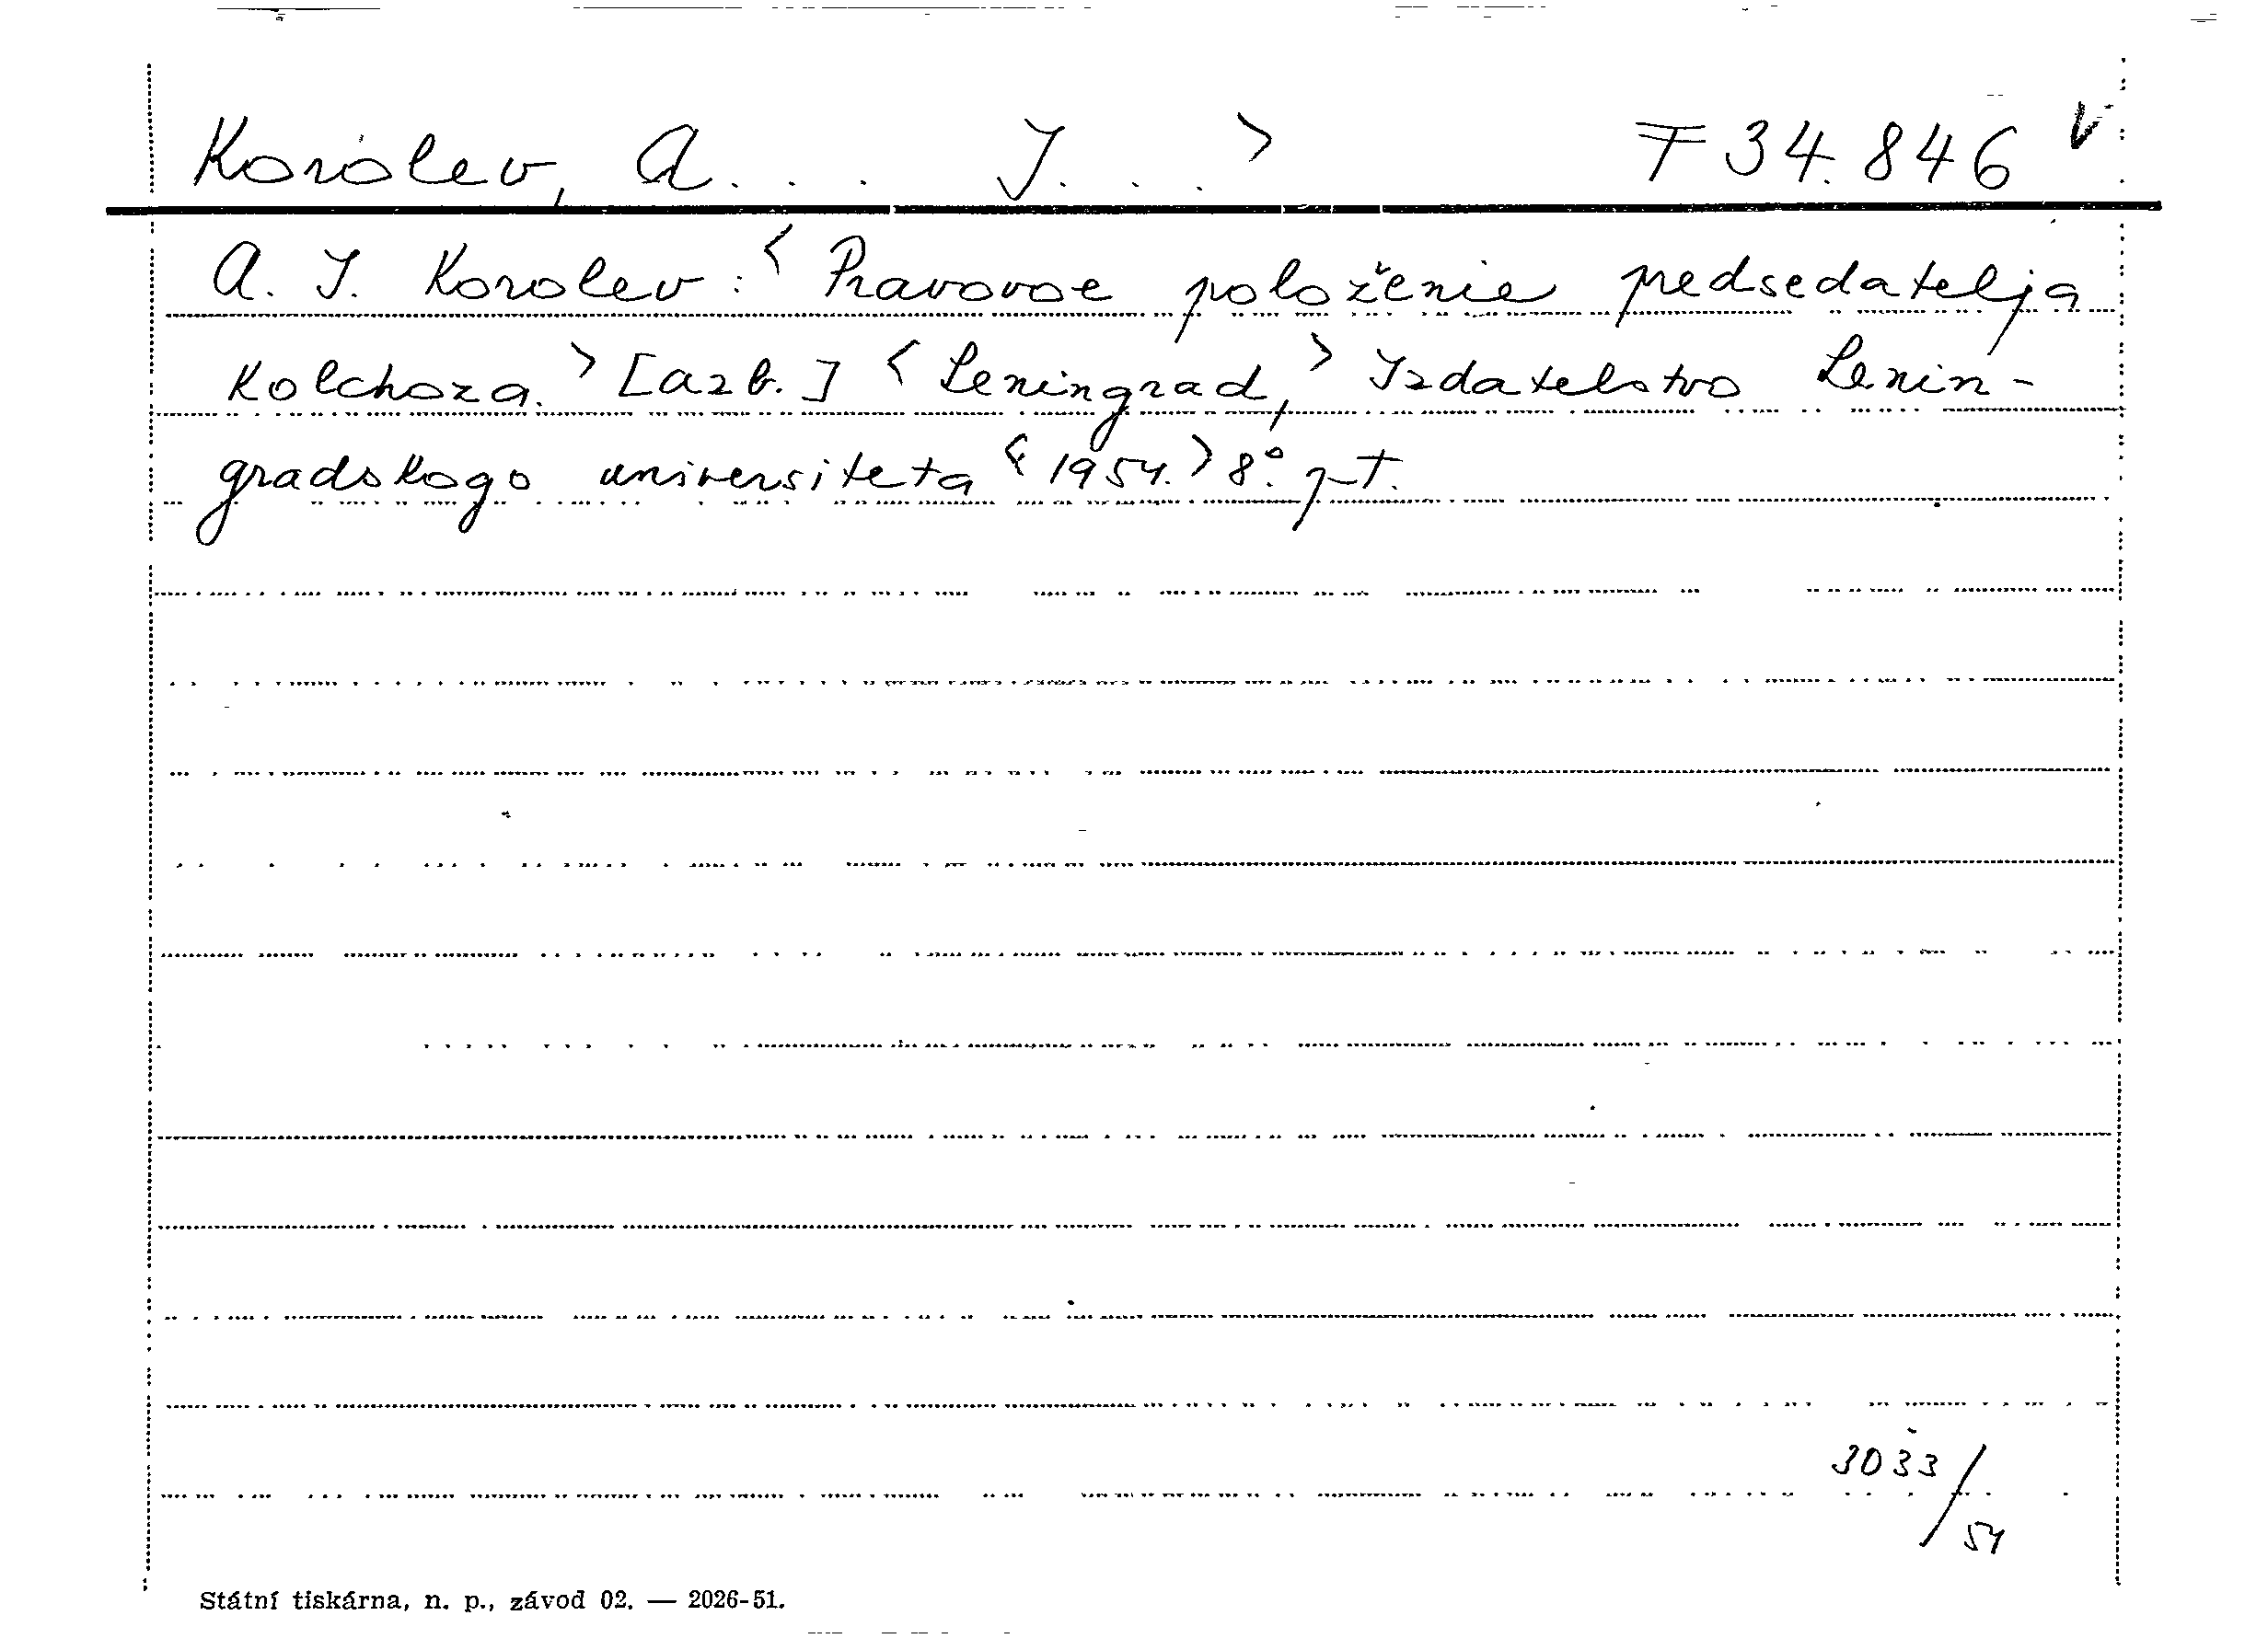 Korolev, A... J...> F 34.846 V
A. J. Korolev: <Pravovoe položenie predsedatelja
kolchoza.> [azb.] <Leningrad,> Izdatelstvo Lenin-
gradskogo universiteta <1954.> 8°.
3033/54
Státní tiskárna, n. p., závod 02. — 2026-51.